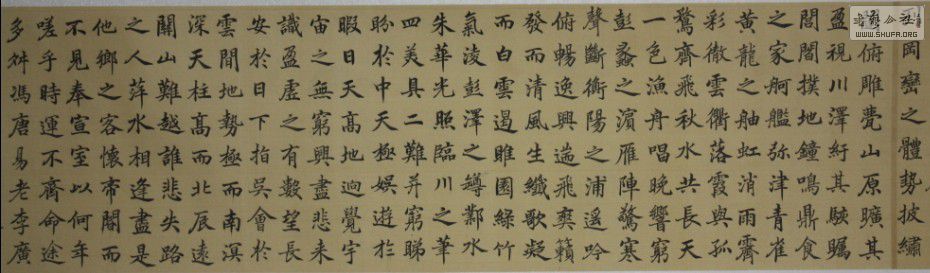 岡巒之體勢披繡
俯雕甍山原曠其
盈視川澤紆其駭矚
閭閻撲地鐘鳴鼎食
之家舸艦弥津青雀
黃龍之舳虹消雨霽
彩徹雲衢落霞與孤
鶩齊飛秋水共長天
一色漁舟唱晚響窮
彭蠡之濱雁陣驚寒
聲斷衡陽之浦遙吟
俯暢逸興遄飛爽籟
發而清風生纖歌凝
而白雲遏睢園綠竹
氣淩彭澤之罇鄴水
朱華光照臨川之筆
四美具二難并窮睇
眄於中天極娛遊於
暇日天高地迥覺宇
宙之無窮興盡悲来
識盈虛之有數望長
安於日下指吳會於
雲間地勢極而南溟
深天柱高而北辰遠
關山難越誰悲失路
之人萍水相逢盡是
他鄉之客懷帝閽而
不見奉宣室以何年
嗟乎時運不齊命途
多舛馮唐易老李廣